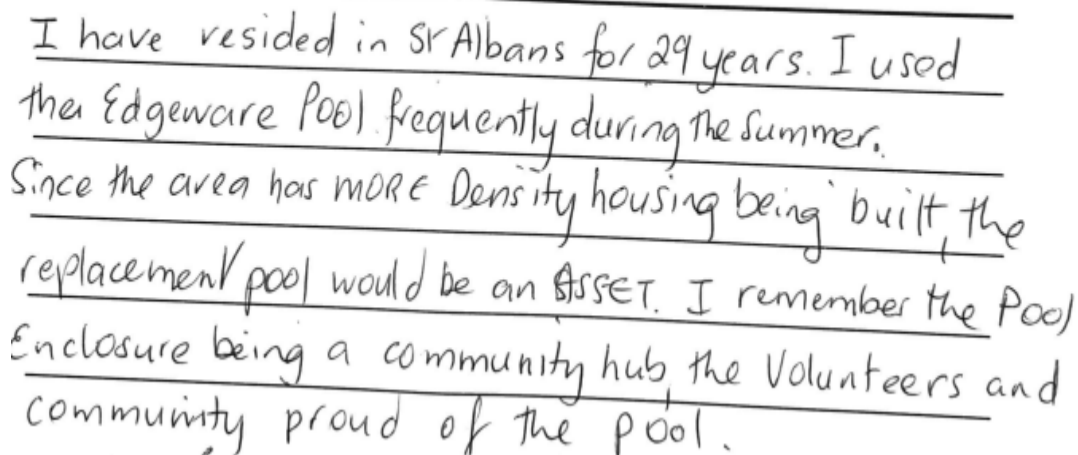 I have resided in St Albans for 29 years. I used
the Edgeware Pool frequently during the Summer.
Since the area has MORE Density housing being built, the
replacement pool would be an ASSET. I remember the Pool
Enclosure being a community hub, the Volunteers and
community proud of the pool.